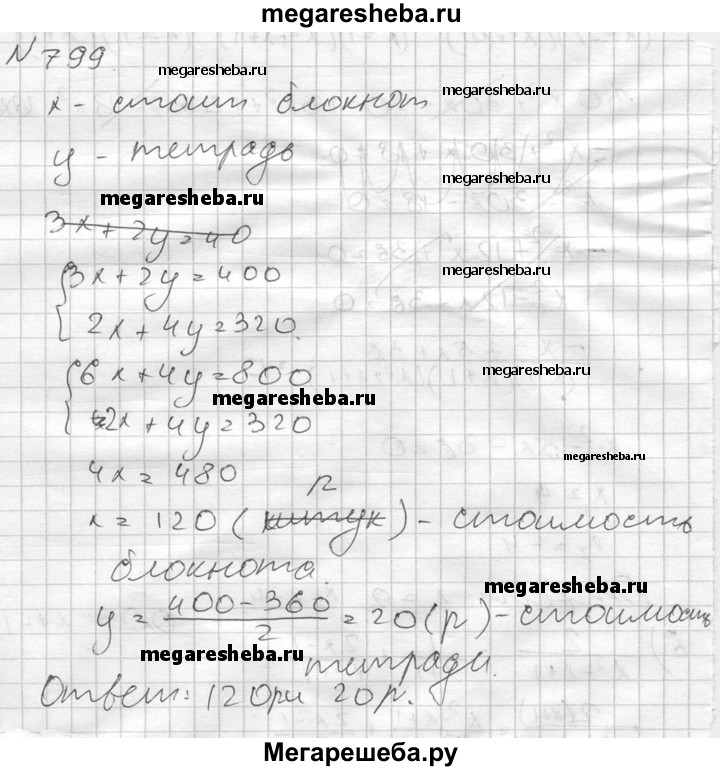 megaresheba.ru
N 799
megaresheba.ru
x - стоит блокнот
y - тетрадь
megaresheba.ru
megaresheba.ru
3x + 2y = 40
3x + 2y = 400
megaresheba.ru
2x + 4y = 320.
6x + 4y = 800
megaresheba.ru
megaresheba.ru
2x + 4y = 320
4x = 480
megaresheba.ru
р
x = 120 (штук) - стоимость
блокнота.
megaresheba.ru
y = (400 - 360)/2 = 20 (р) - стоимость
megaresheba.ru
тетради.
Ответ: 120р и 20р.
Мегарешеба.ру